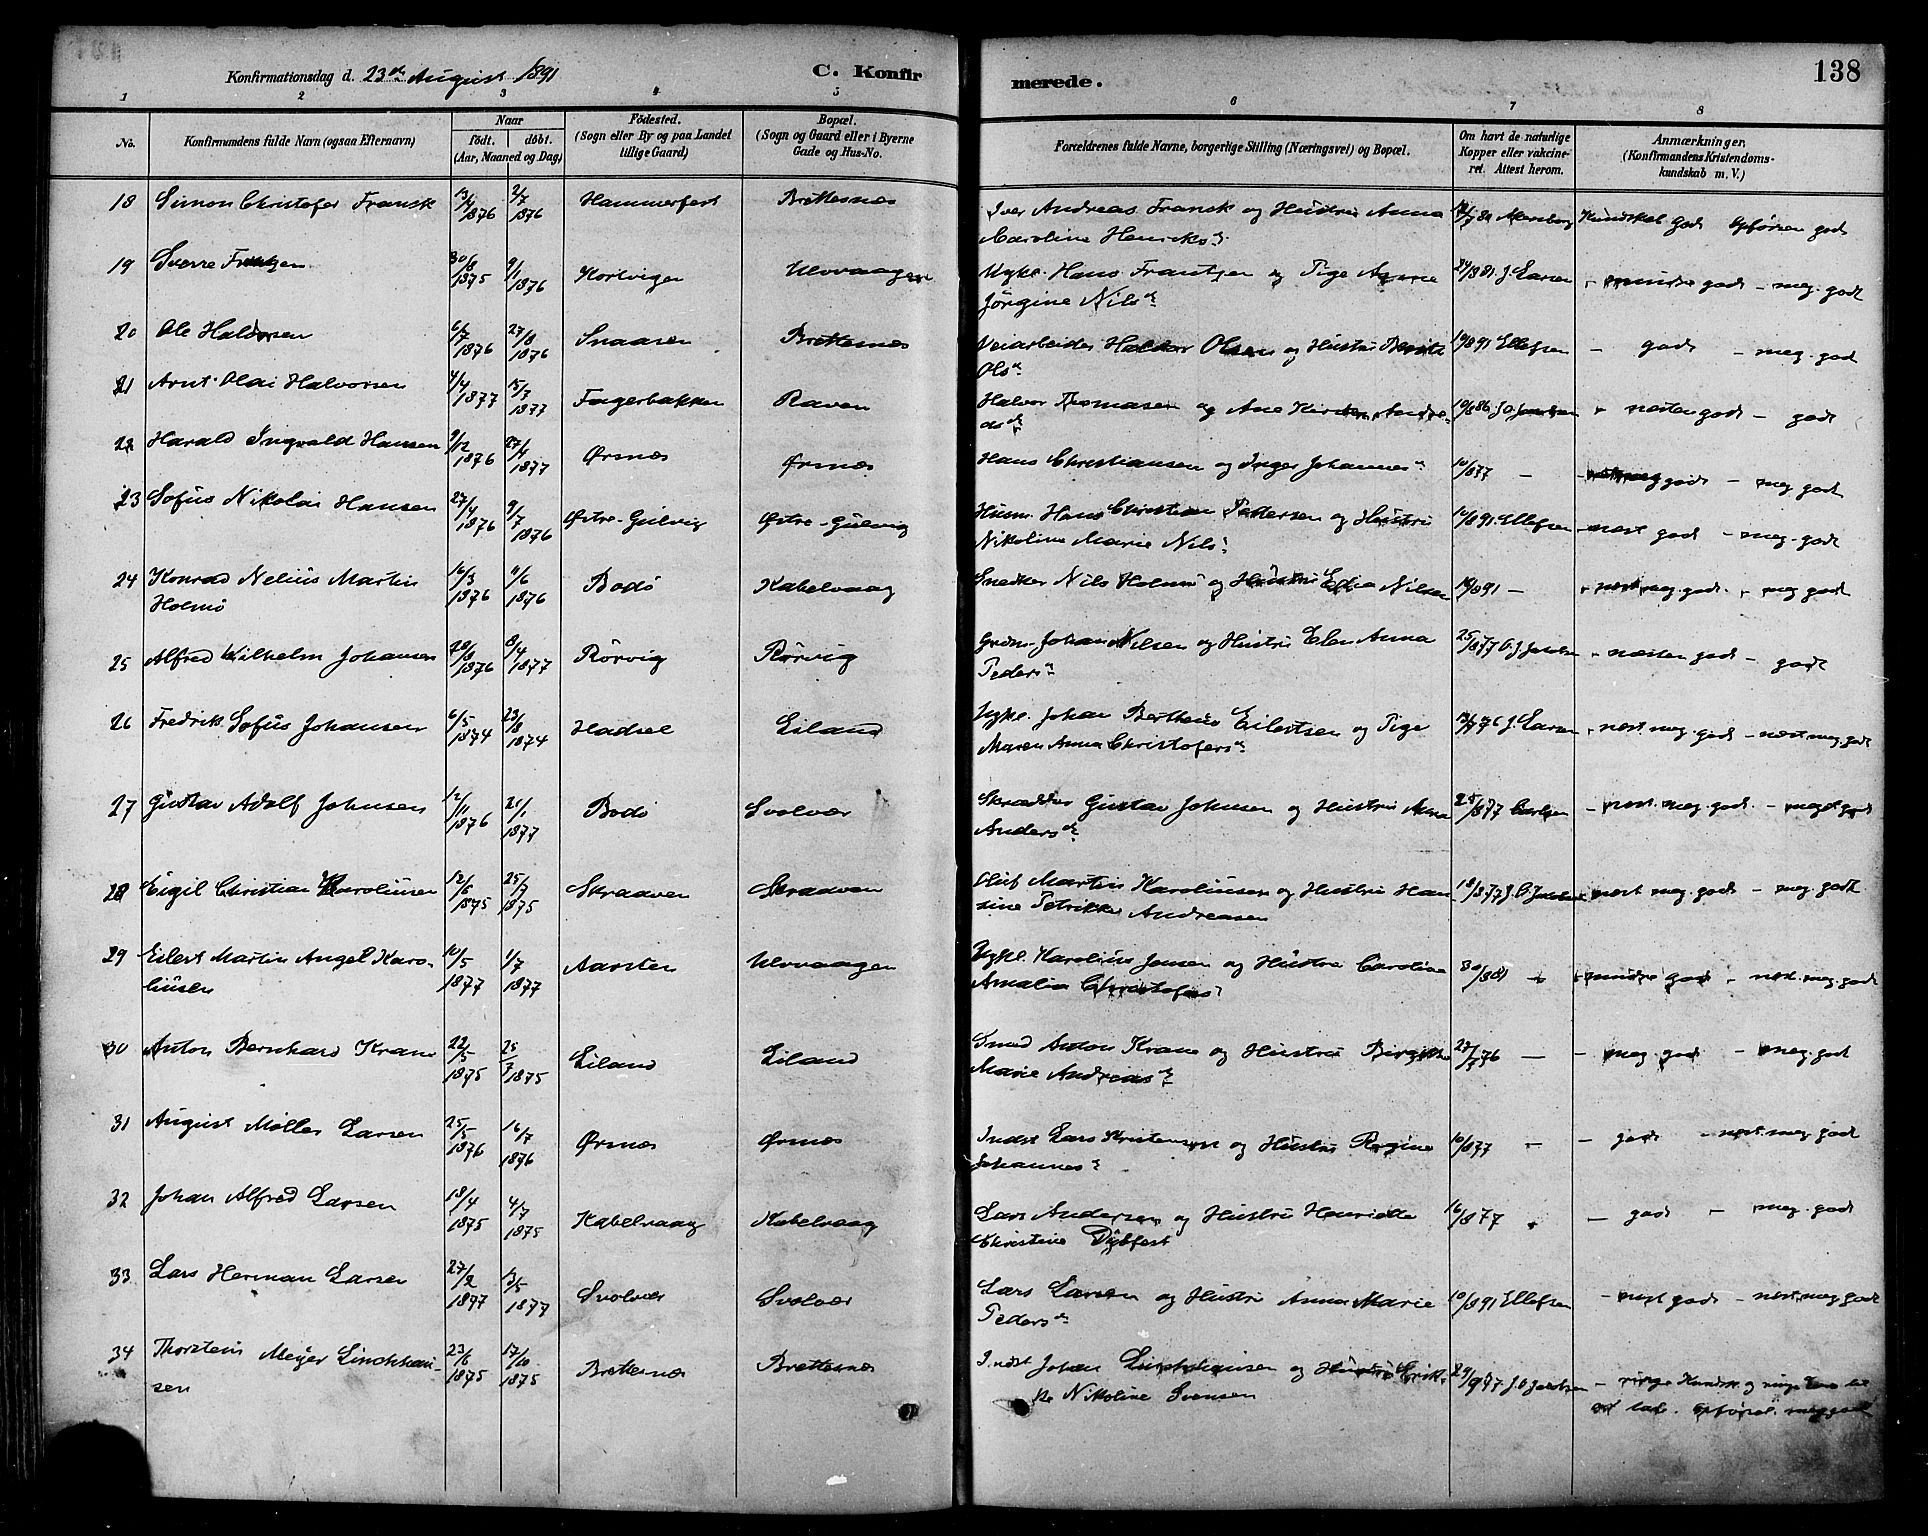 Konfirmationsdag d. 23de August 1891
C. Konfirmerede.
138
1 2 3 4 5 6 7 8
No.
Konfirmandens fulde Navn (ogsaa Efternavn)
Naar
födt. döbt.
(Aar, Maaned og Dag)
Födested.
(Sogn eller By og paa Landet
tillige Gaard)
Bopæl.
(Sogn og Gaard eller i Byerne
Gade og Hus-No.
Forældrenes fulde Navne, borgerlige Stilling (Næringsvei) og Bopæl.
Om havt de naturlige
Kopper eller vakcineret. Attest herom.
Anmærkninger.
(Konfirmandens Kristendomskundskab m. V.)
18 Simon Christofer Fransk 13/4 1876 2/7 1876 Hammerfest Brettesnæs Iver Andreas Fransk og Hustru Anna
Caroline Henriksd. Kundskab godt Opförsel godt
19 Sverre Frantzen 30/8 1875 9/1 1876 Ulvaagen Ugkl. Hans Frantzen og Pige
Jörgine Nilsd. 24/8 81 J. Larsen - mindre godt - meg. godt
20 Ole Haldorsen 6/7 1876 27/8 1876 Snaasen Brettesnæs Veiarbeider Haldor Olsen og Hustru
Olsd. 19/8 91 Ellefsen - godt - meg. godt
21 Arnt Olai Halvorsen 4/4 1877 15/7 1877 Fagerbakken Raven Halvor Thomasen og Ane Kirsten
- næsten godt - godt
22 Harald Ingvald Hansen 9/12 1876 27/4 1877 Örsnæs Örsnæs Hans Christiansen og Inger Johannesd. 10/8 77 - godt - meg godt
23 Sofus Nikolai Hansen 27/4 1876 9/7 1876 Östre-Gulvig Östre-Gulvig Husm. Hans Christian Pettersen og Hustru
Nikoline Marie Nilsd. 10/8 91 Ellefsen - næst godt - meg. godt
24 Konrad Nelius Martin
Holmö 16/3 1876 11/6 1876 Bodö Kabelvaag Snedker Nils Holmö og Hustru Nilsen 19/8 91 - - næst meg. godt - meg godt
25 Alfred Wilhelm Johansen 20/8 1876 8/4 1877 Rörvig Rörvig Johan Nilsen og Hustru Elen Anna
Pedersd. 25/8 77 - næsten godt - godt
26 Fredrik Sofus Johansen 6/5 1874 23/8 1874 Hadsel Eiland Ugkl. Johan Bertheus Eilertsen og Pige
Maren Anna Christofersd. J. Larsen - næst meg. godt - næst meg. godt
27 Gustav Adolf Johnsen 12/11 1876 21/1 1877 Bodö Svolvær Skrædder Gustav Johnsen og Hustru Anna
Andersd. 25/8 77 Carlsen - næst meg. godt - meget godt
28 Eigil Christian Karoliusen 12/6 1875 25/7 1875 Skraaven Skraaven Oluf Martin Karoliusen og Hustru Hansine Petrikke Andreasen 18/8 77 - næst meg. godt - meg. godt
29 Eilert Martin Angel Karoliusen 10/5 1877 1/7 1877 Aarsten Ulvaagen Ugkl. Karolius Jensen og Hustru Caroline
Amalia Christofersd. 30/8 81 - mindre godt - næst. meg. godt
30 Anton Bernhard Krane 22/5 1875 25/7 1875 Eiland Eiland Smed Anton Krane og Hustru Birgitte
Marie Andreasd. 27/7 76 - - meg. godt - meg. godt
31 August Möller Larsen 25/5 1876 16/7 1876 Örsnæs Örsnæs Indst Lars Kristensen og Hustru Regine
Johannesd. 10/8 77 - - godt - næst. meg. godt
32 Johan Alfred Larsen 18/4 1875 4/7 1875 Kabelvaag Kabelvaag Lars Andersen og Hustru Henriette
Christine Dybfest 16/8 77 - godt - meg. godt
33 Lars Herman Larsen 27/2 1877 13/5 1877 Svolvær Svolvær Lars Larsen og Hustru Anna Marie
Pedersd. 10/8 91 Ellefsen - næst godt - næst. meg. godt
34 Thorstein Meyer Linchhausen 23/6 1875 17/10 1875 Brettesnæs Brettesnæs Indst Johan Linchhausen og Hustru Erikke Nikoline Svensen 29/9 77 - ringe Kundsk. og ringe
Opförsel meg godt